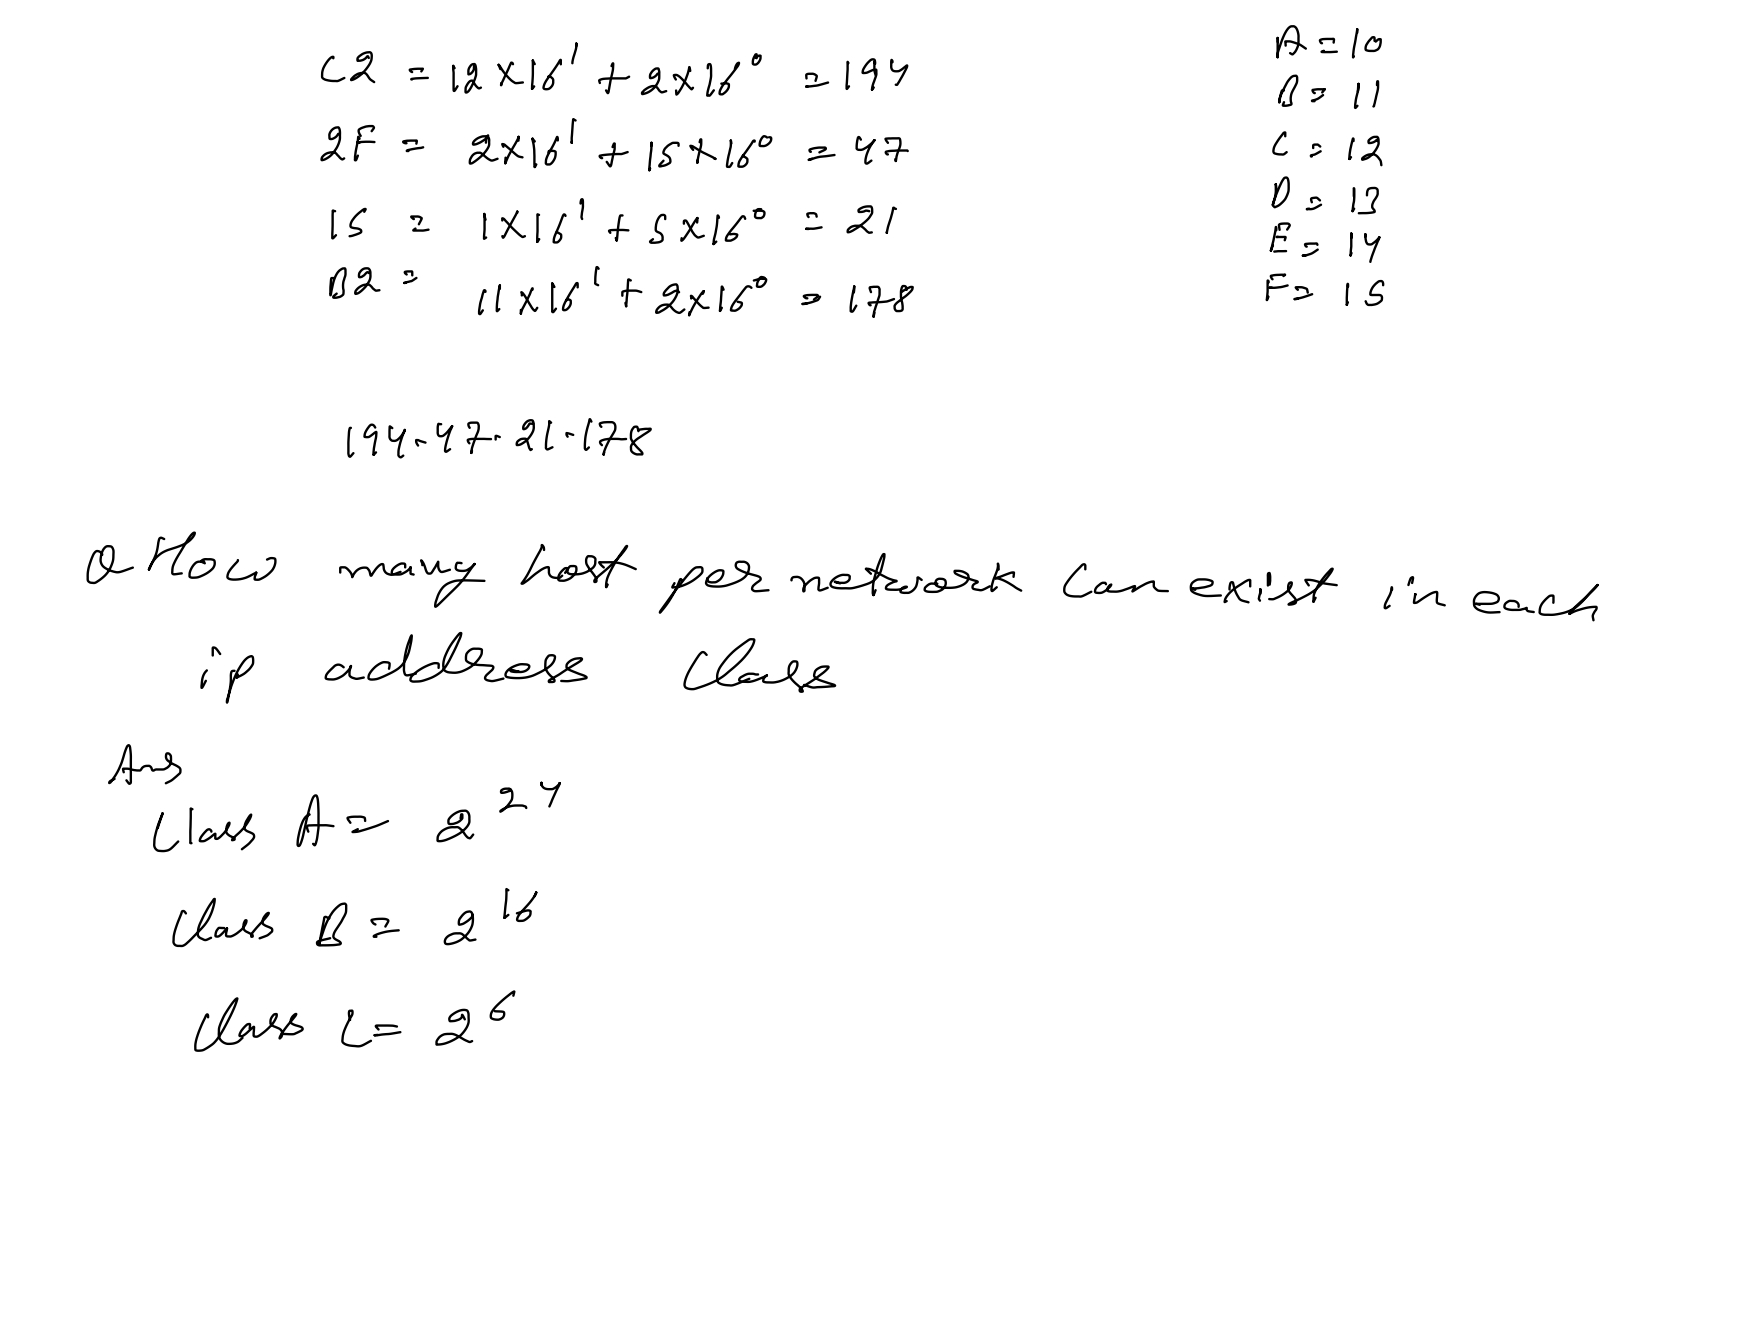 C2 = 12×16¹ + 2×16⁰ = 194
2F = 2×16¹ + 15×16⁰ = 47
15 = 1×16¹ + 5×16⁰ = 21
B2 = 11×16¹ + 2×16⁰ = 178
A = 10
B = 11
C = 12
D = 13
E = 14
F = 15
194.47.21.178
Q How many host per network can exist in each
ip address class
Ans
Class A = 2²⁴
Class B = 2¹⁶
Class C = 2⁶